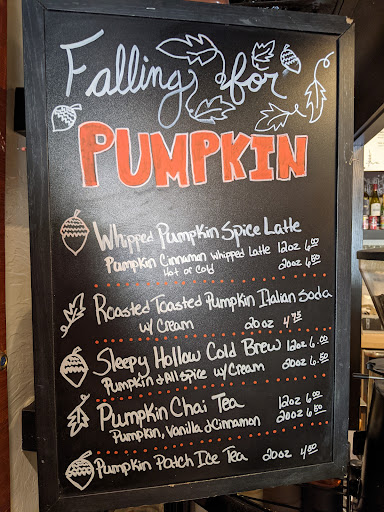 Falling for
PUMPKIN
Whipped Pumpkin Spice Latte
Pumpkin Cinnamon whipped Latte 12oz 6.00
Hot or Cold 20oz 6.50
Roasted Toasted Pumpkin Italian Soda
w/ Cream 20oz 4.75
Sleepy Hollow Cold Brew 12oz 6.00
Pumpkin & All Spice w/ Cream 20oz 6.50
Pumpkin Chai Tea 12oz 6.00
Pumpkin, Vanilla & Cinnamon 20oz 6.50
Pumpkin Patch Ice Tea 20oz 4.50